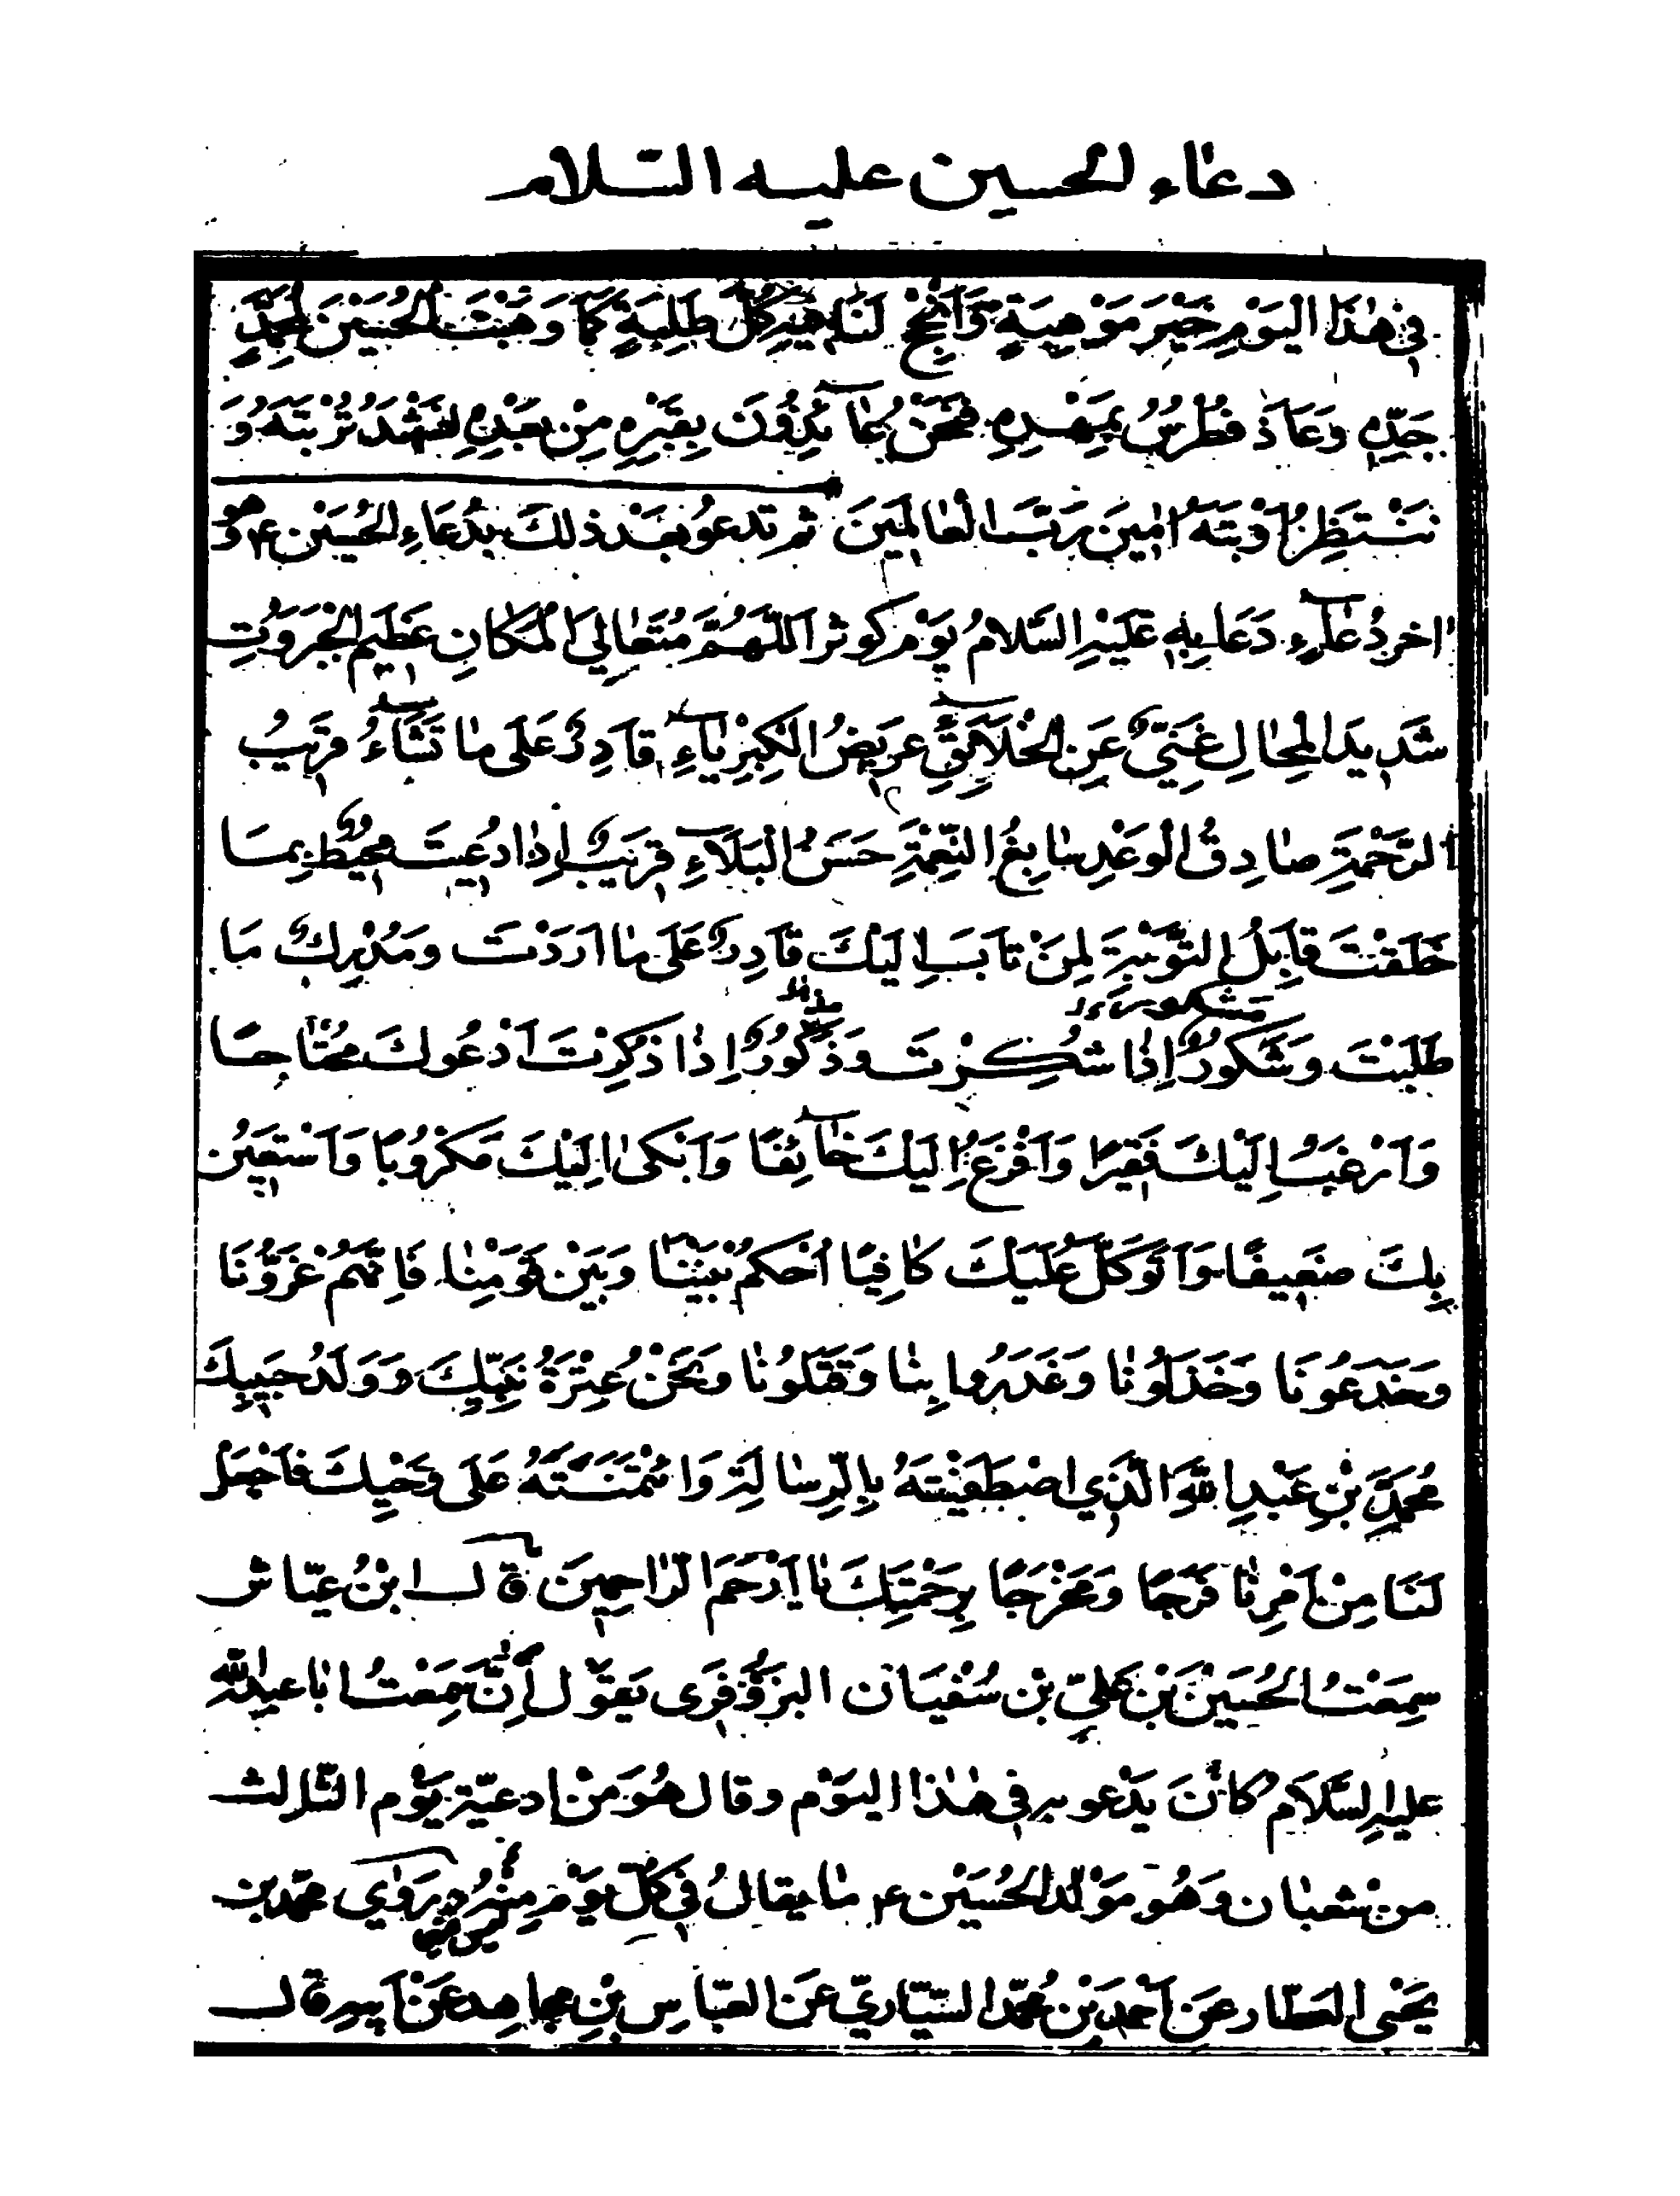 دعاء الحسين عليه السلام
في هٰذَا الْيَوْمِ خَيْرَ مَوْهِبَةٍ وَاَنْجِحْ لَنَا فيهِ كُلَّ طَلِبَةٍ كَمَا وَهَبْتَ الْحُسَيْنَ لِمُحَمَّدٍ
جَدِّهِ وَعَاذَ فُطْرُسُ بِمَهْدِهِ فَنَحْنُ عَائِذُونَ بِقَبْرِهِ مِنْ بَعْدِهِ نَشْهَدُ تُرْبَتَهُ وَ
نَنْتَظِرُ اَوْبَتَهُ اٰمِينَ رَبَّ الْعَالَمِينَ ثم تدعو بَعْدَ ذلك بِدُعَاءِ الْحُسَيْن ع وَهُوَ
اخر دُعَاء دَعَا بِهِ عَلَيْهِ السَّلامُ يَوْم كوثر اَللّٰهُمَّ مُتَعَالِيَ الْمَكَانِ عَظِيمَ الْجَبَرُوتِ
شَدِيدَ الْمِحَالِ غَنِيٌّ عَنِ الْخَلَائِقِ عَرِيضُ الْكِبْرِيَاءِ قَادِرٌ عَلَى مَا تَشَاءُ قَرِيبُ
الرَّحْمَةِ صَادِقُ الْوَعْدِ سَابِغُ النِّعْمَةِ حَسَنُ الْبَلَاءِ قَرِيبٌ اِذَا دُعِيتَ مُحِيطٌ بِمَا
خَلَقْتَ قَابِلُ التَّوْبَةِ لِمَنْ تَابَ اِلَيْكَ قَادِرٌ عَلَى مَا اَرَدْتَ وَمُدْرِكٌ مَا
طَلَبْتَ وَشَكُورٌ اِذَا شُكِرْتَ وَذَكُورٌ اِذَا ذُكِرْتَ اَدْعُوكَ مُحْتَاجًا
وَاَرْغَبُ اِلَيْكَ فَقِيرًا وَاَفْزَعُ اِلَيْكَ خَائِفًا وَاَبْكى اِلَيْكَ مَكْرُوبًا وَاَسْتَعِينُ
بِكَ ضَعِيفًا وَاَتَوَكَّلُ عَلَيْكَ كَافِيًا اُحْكُمْ بَيْنَنَا وَبَيْنَ قَوْمِنَا فَاِنَّهُمْ غَرُّونَا
وَخَدَعُونَا وَخَذَلُونَا وَغَدَرُوا بِنَا وَقَتَلُونَا وَنَحْنُ عِتْرَةُ نَبِيِّكَ وَوَلَدُ حَبِيبِكَ
مُحَمَّدِ بْنِ عَبْدِ اللّٰهِ الَّذِي اصْطَفَيْتَهُ بِالرِّسَالَةِ وَائْتَمَنْتَهُ عَلَى وَحْيِكَ فَاجْعَلْ
لَنَا مِنْ اَمْرِنَا فَرَجًا وَمَخْرَجًا بِرَحْمَتِكَ يَا اَرْحَمَ الرَّاحِمِينَ قال ابْنُ عيّاش
سَمِعْتُ الْحُسَيْنَ بْنَ عَلِيِّ بْن سُفْيَان البزوفرى يَقُول سَمِعْتُ ابا عبد اللّٰه
عليه السَّلام كَانَ يَدْعو به في هٰذا اليَوْم وقال هُوَ مَنْ ادعيّة يَوْم الثّالث
من شعبان وَهُو مَوْلد الحُسَيْن ع مَا يقالُ في كُلّ يَوْم مِنْهُ رَوٰي محمّد بن
يَحْيى العطّار عَن اَحْمَدَ بْن مُحَمَّد السَّيّاريّ عَن العَبّاس بْنِ مجاهد عَنْ اَبيهِ قال